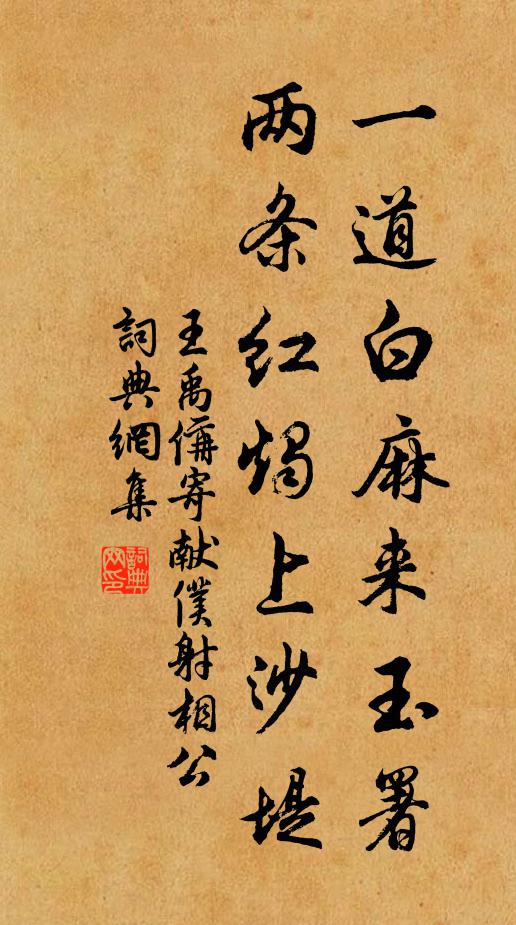 一道白麻来玉署
两条红烛上沙堤
王禹偁寄献僕射相公
詞典網集
詞典网印